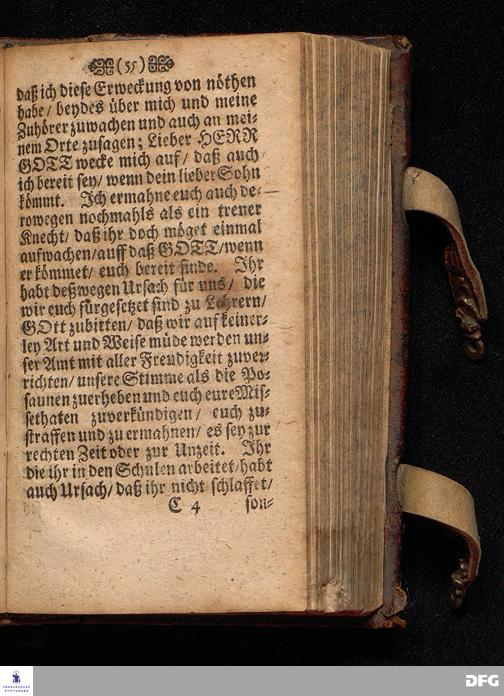 (55)
daß ich diese Erweckung von nöthen
habe/ beydes über mich und meine
Zuhörer zuwachen und auch an mei-
nem Orte zusagen; Lieber HERR
GOTT wecke mich auf/ daß auch
ich bereit sey/ wenn dein lieber Sohn
kömmt. Ich ermahne euch auch de-
rowegen nochmahls als ein treuer
Knecht/ daß ihr doch möget einmal
aufwachen/ auff daß GOTT/ wenn
er kömmet/ euch bereit finde. Ihr
habt deßwegen Ursach für uns/ die
wir euch fürgesetzet sind zu Lehrern/
GOtt zubitten/ daß wir auf keiner-
ley Art und Weise müde werden un-
ser Amt mit aller Freudigkeit zuver-
richten/ unsere Stimme als die Po-
saunen zuerheben und euch eure Mis-
sethaten zuverkündigen/ euch zu-
straffen und zu ermahnen/ es sey zur
rechten Zeit oder zur Unzeit. Ihr
die ihr in den Schulen arbeitet/ habt
auch Ursach/ daß ihr nicht schlaffet/
C 4 son-
FRANCKESCHE
STIFTUNGEN
DFG